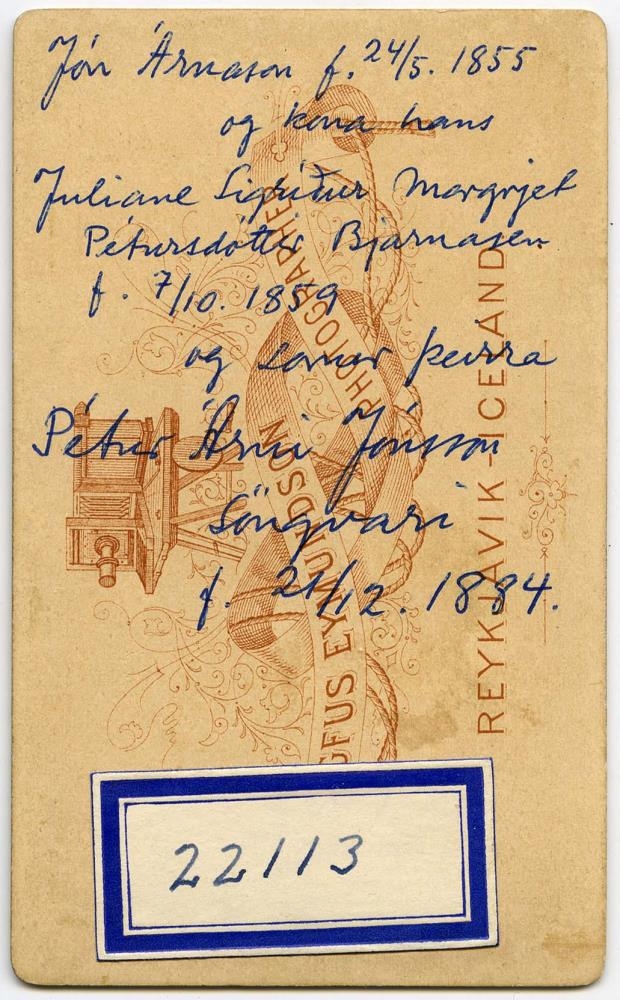 Jón Árnason f. 24/5. 1855
og kona hans
Juliane Sigríður Margrjet
Pétursdóttir Bjarnasen
f. 7/10. 1859
og sonur þeirra
Pétur Árni Jónsson
Söngvari
f. 21/12. 1884.
GFUS EYMUNDSON
PHOTOGRAPHER
REYKJAVIK-ICELAND
22113